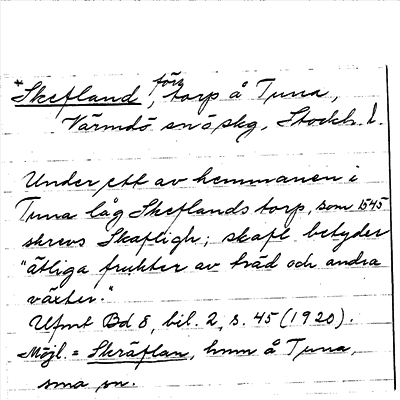 *Skefland, förr torp å Tuna,
Värmdö snöskg, Stockh. l.
Under ett av hemmanen i
Tuna låg Skeflands torp, som 1545
skrevs Skafligh; skafl betyder
"ätliga frukter av träd och andra
växter."
Ufmt Bd 8, bil. 2, s. 45 (1920).
Möjl. = Skräflan, hmn å Tuna,
sma sn.